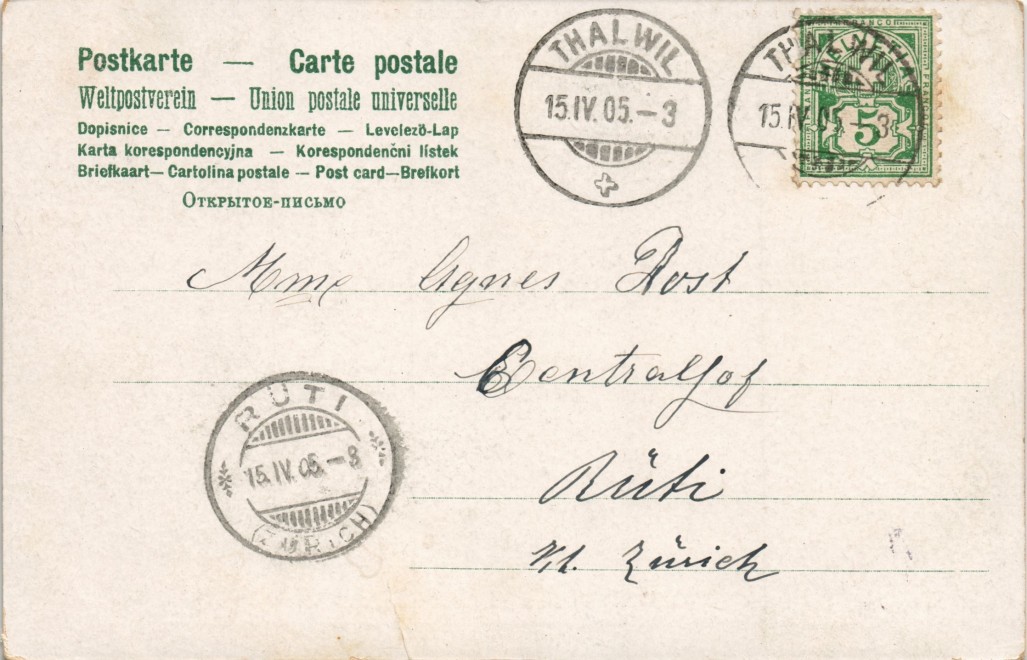 Postkarte — Carte postale
Weltpostverein — Union postale universelle
Dopisnice — Correspondenzkarte — Levelezö-Lap
Karta korespondencyjna — Korespondenční lístek
Briefkaart — Cartolina postale — Post card — Brefkort
Открытое-письмо
THALWIL
15.IV.05.–3
THALWIL
15.IV.05.–3
HELVETIA
FRANCO
5
Mme Agnes Rost
Centralhof
RÜTI
15.IV.05.–8
(ZÜRICH)
Rüti
Kt. Zürich